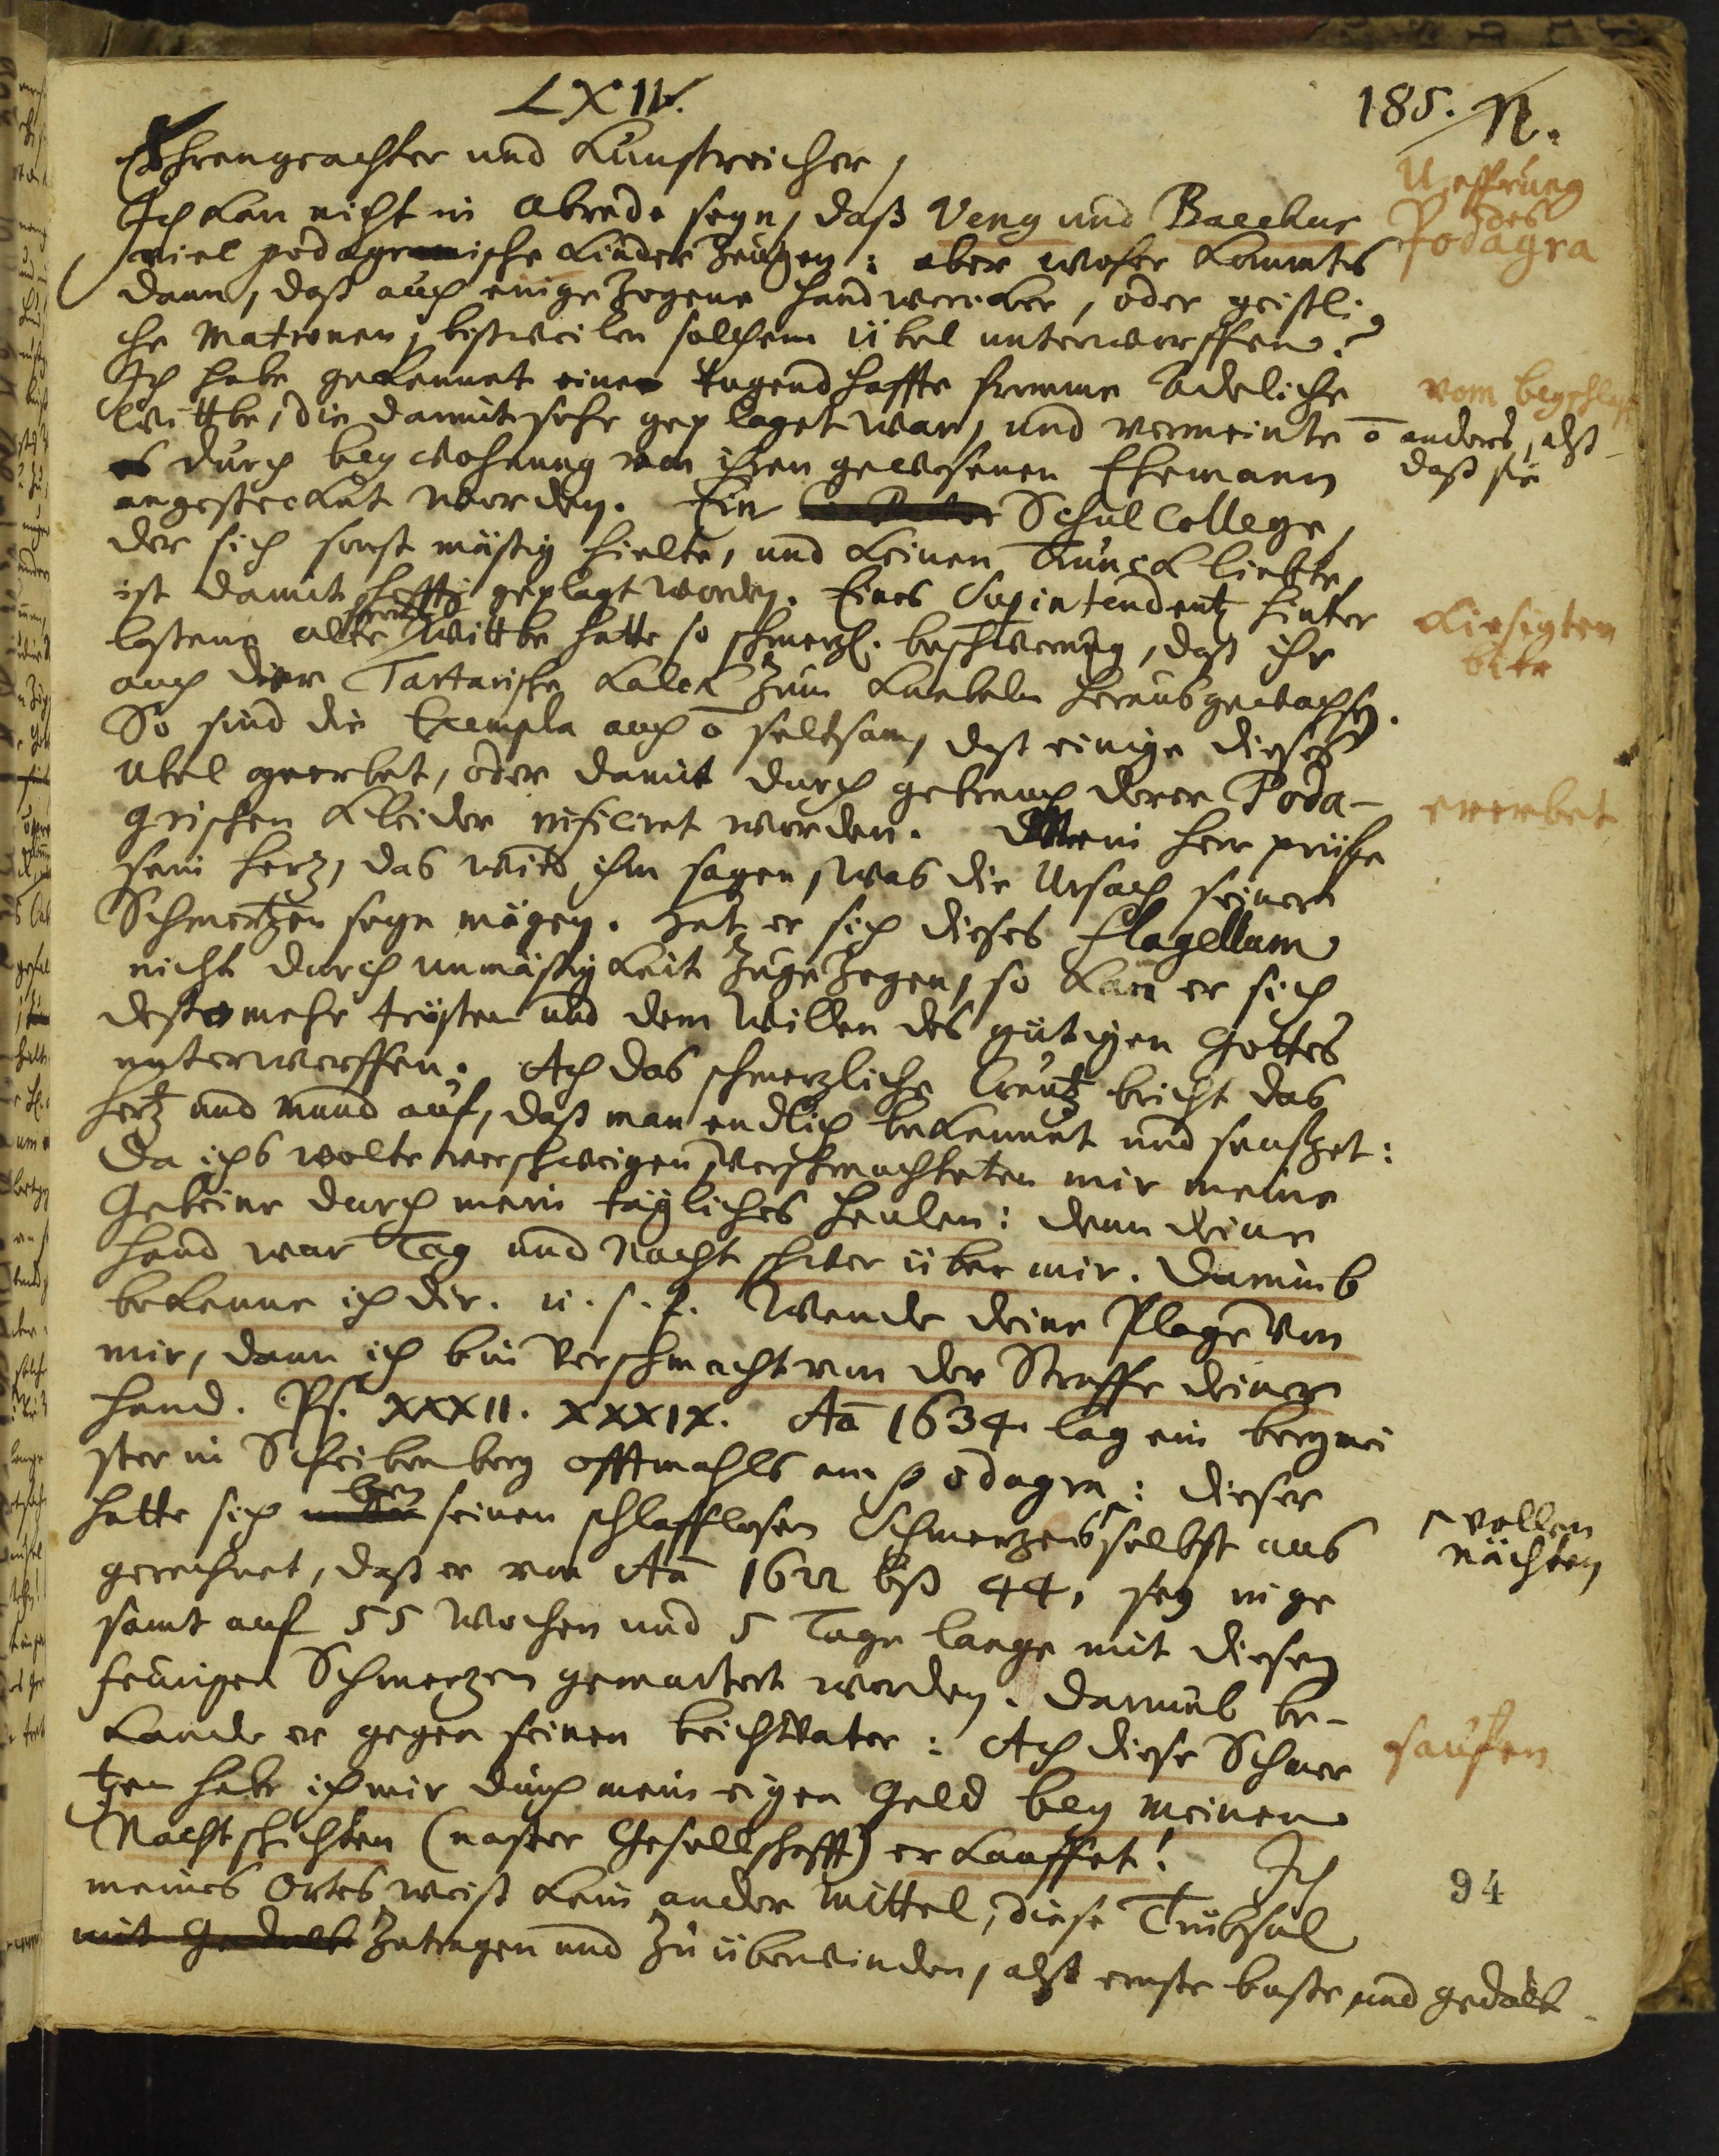 LXIV.
185. N.
Ehrengeachter und Kunstreicher,
Ich kan nicht in Abrede seyn, daß Veng und Bacchus
viel podagrische Kinder zeugen: aber woher kommts
dann, daß auch eingezogene Handwercker, oder geistli-
che Matronen, bißweilen solchem übel unterworffen?
Ich habe gekennet eine tugendhaffte fromme Adeliche
Wittbe, die damit sehr geplaget war, und vermeinte ō anders, alß
daß sie
es durch beywohnung von ihren gewesenen Ehemann
angestecket worden. Ein Schul College,
der sich sonst mäßig hielte, und keinen Trunck liebte,
ist damit hefftig geplagt worden. Eines Supintendentz hinter
lassene alte Wittbe hatte so schmerzl. beschwerung, daß ihr
auch der Tartarische Kalck zum Knebeln herausgewachsen.
So sind die Exempla auch ō seltsam, daß einige dieses
Ubel geerbet, oder damit durch gebrauch derer Poda-
grischen Kleider inficiret worden. Mein Herr prüfe
sein Hertz, das wird ihm sagen, was die Ursach seiner
Schmertzen seyn mögen. Hat er sich dieses flagellum
nicht durch unmäßigkeit zugezogen, so kan er sich
desto mehr trösten und dem Willen des gütigen Gottes
unterwerffen. Ach das schmerzliche Creutz bricht das
Hertz und Mund auf, daß man endlich bekennet und seufzet:
Da ichs wolte verschweigen, verschmachteten mir meine
Gebeine durch mein tägliches heulen: denn deine
Hand war Tag und Nacht schwer über mir. Darumb
bekenne ich dir. u. s. f. Wende deine Plage von
mir, dann ich bin verschmacht von der Straffe deiner
Hand. Ps. XXXII. XXXIX. Aō 1634. lag ein bergmei
ster in Scheibenberg offtmahls am podagra: dieser
hatte sich bey seinen schlafflosen Schmerzens selbst aus
gerechnet, daß er von Aō 1622 biß 44, sey in ge
samt auf 55 Wochen und 5 Tage lange mit diesen
feurigen Schmertzen gemartert worden. Darumb be-
kande er gegen seinen beichtvater: Ach diese Schmer
tzen habe ich mir durch mein eigen Geld bey meinen
Nachtschichten (nasser Gesellschafft) erkauffet! Ich
meines Ortes weiß kein ander Mittel, diese Trübsal
mit Gedult zutragen und zu überwinden, alß ernste busse und gedult
Ursprung
des
Podagra
vom beyschlaf
ererbet
vollen
nächten
saufen
94